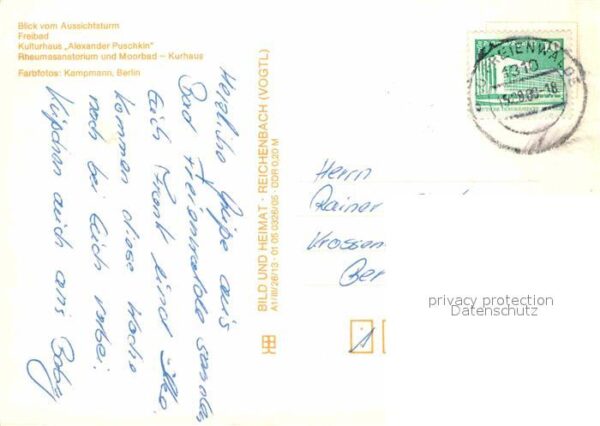 Blick vom Aussichtsturm
Freibad
Kulturhaus „Alexander Puschkin“
Rheumasanatorium und Moorbad – Kurhaus
Farbfotos: Kampmann, Berlin
Herzliche Grüße aus
Bad Freienwalde senden
Euch Frank und
kommen diese Woche
noch bei Euch vorbei.
Küßchen auch ans Baby
BILD UND HEIMAT · REICHENBACH (VOGTL)
A1/III/26/13 · 01 05 0326/05 · DDR 0,20 M
FREIENWALDE
1310
-18
Herrn
Rainer
Krossen
Ber
privacy protection
Datenschutz